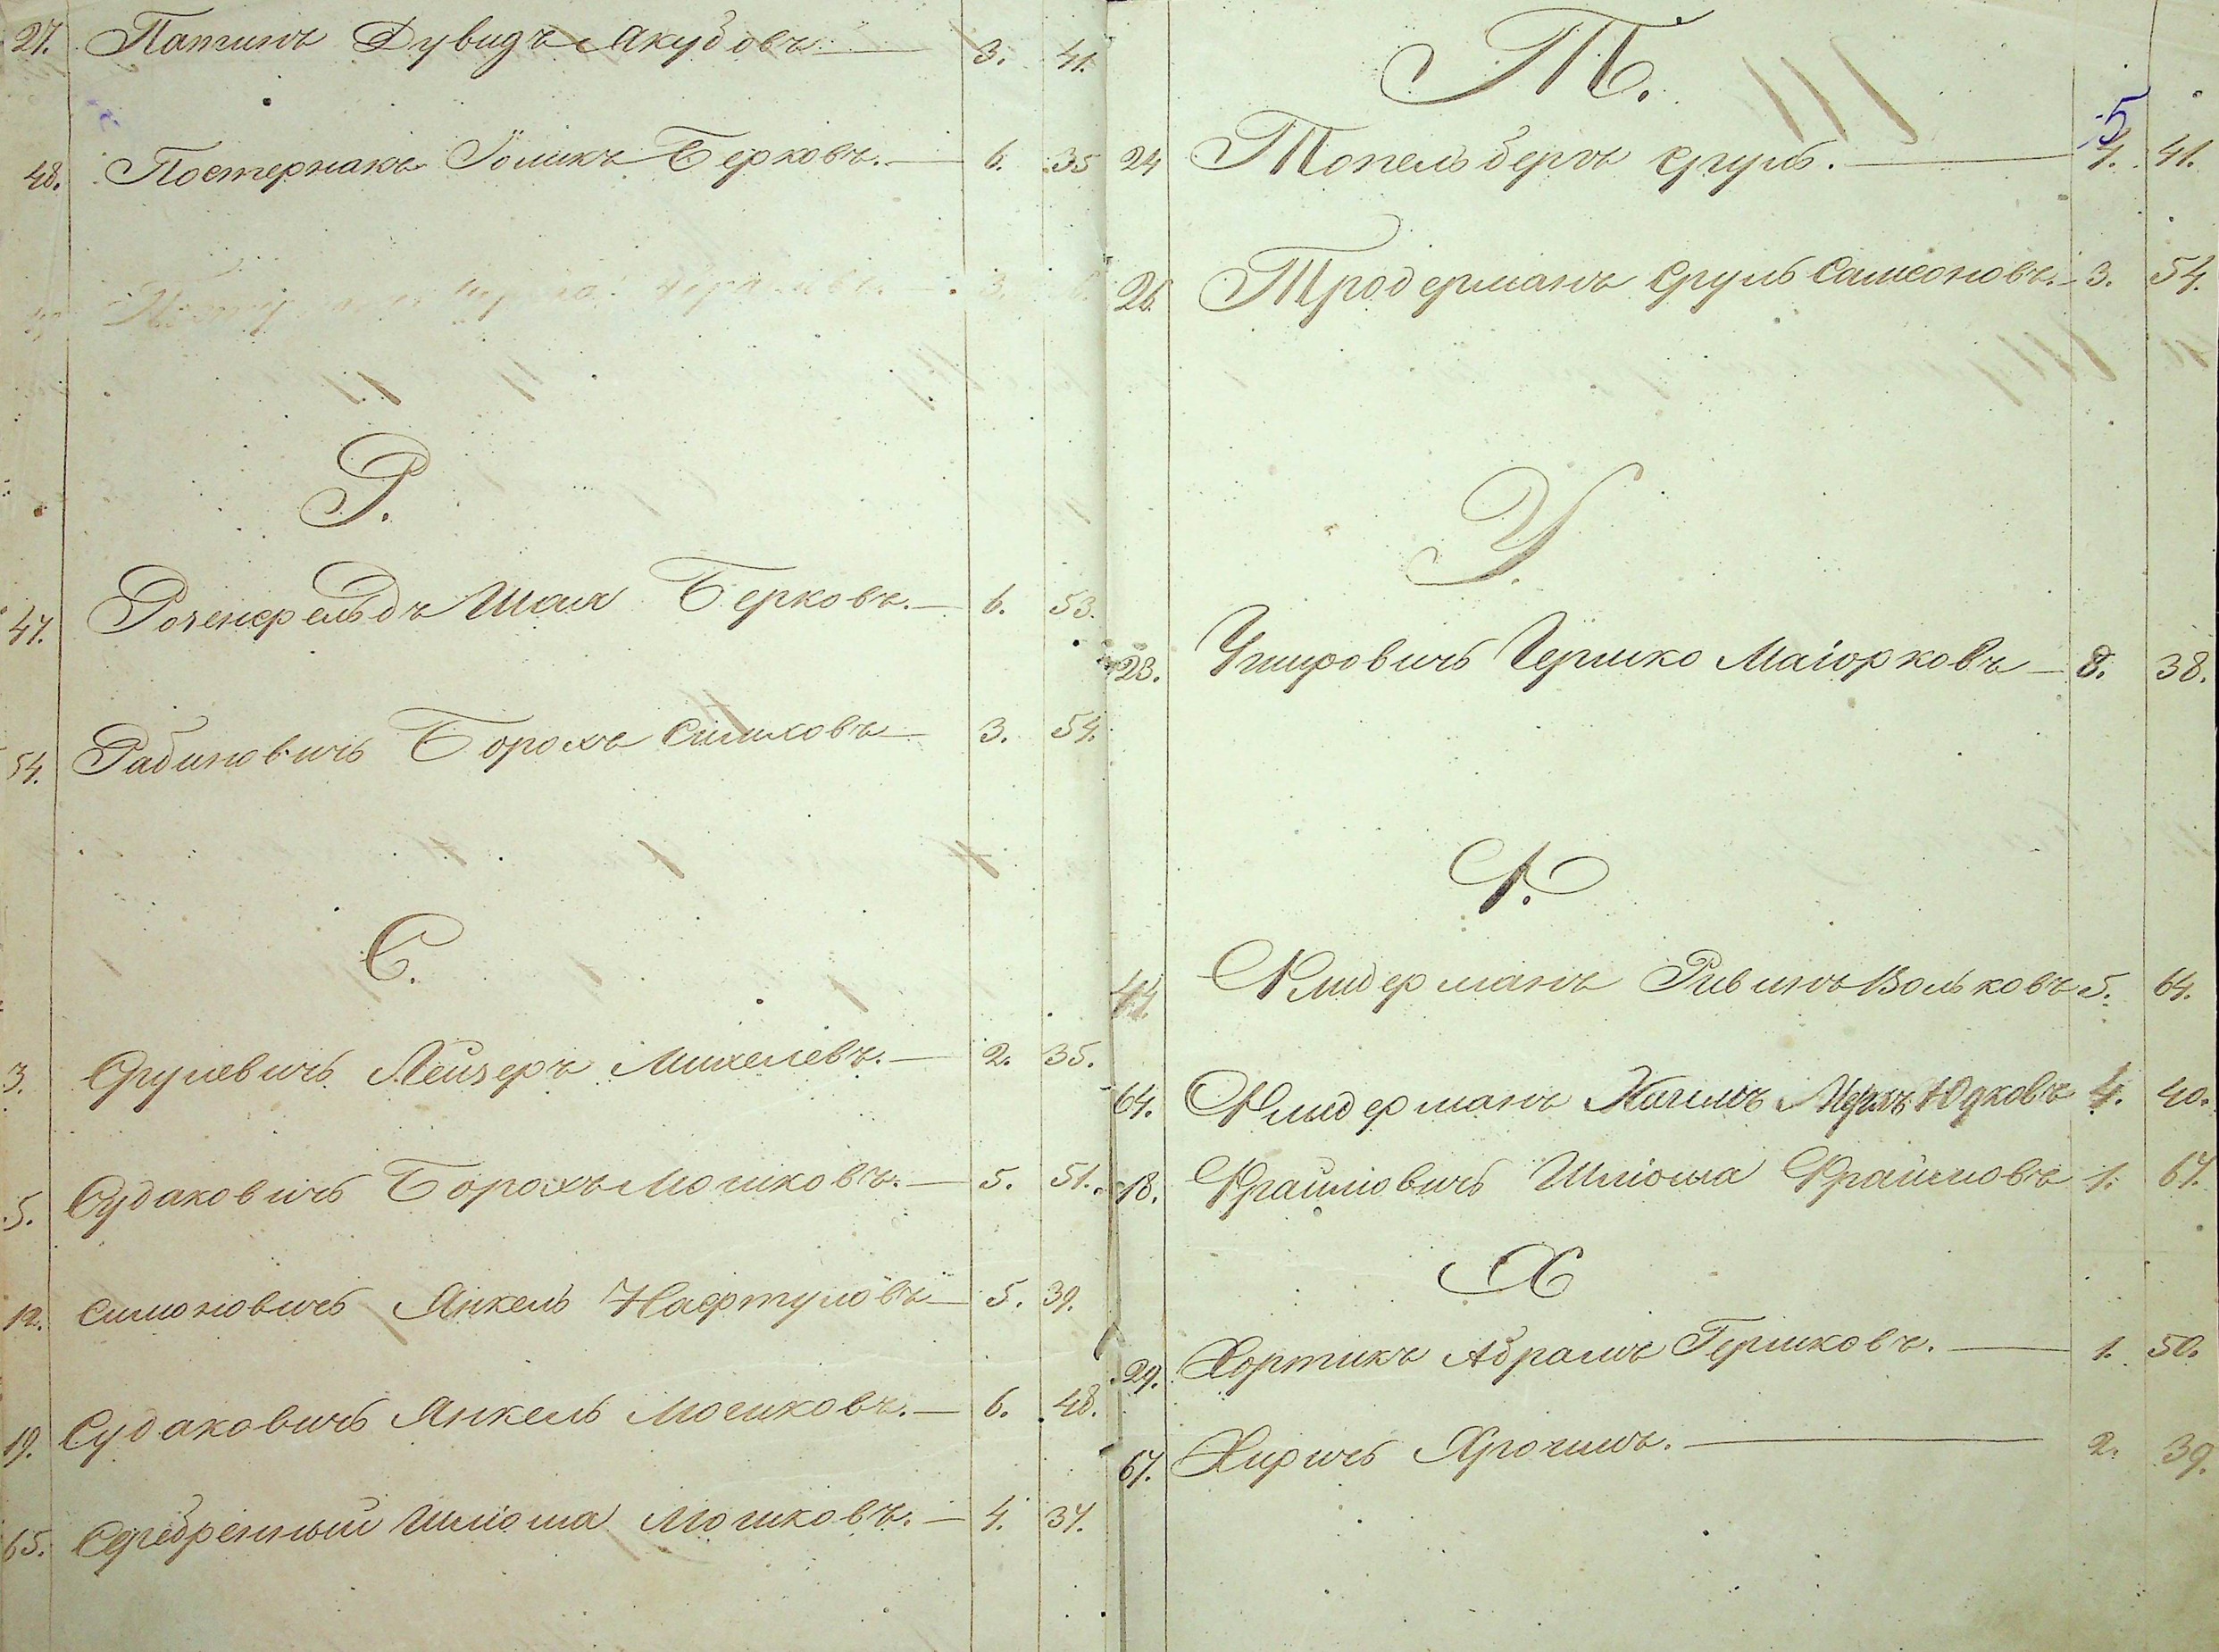 27. Патинъ Дувидъ Якубовъ — 3. 41.
48. Постернакъ Іоликъ Берковъ. — 6. 35
3.
Р.
47. Розенфельдъ Шая Берковъ. — 6. 53.
54. Рабиновичъ Борохъ Симховъ — 3. 54.
С.
3. Срулевичъ Лейзеръ Михелевъ. — 2. 35.
5. Судаковичъ Борохъ Мошковъ. — 5. 51.
12. Симоновичъ Янкель Нафтуловъ — 5. 39.
19. Судаковичъ Янкель Мошковъ. — 6. 48.
65. Серебренный Шліома Мошковъ. — 4. 37.
Т.
5
24 Топельбергъ Сруль. — 41.
26. Тродерманъ Сруль Самсоновъ. — 3. 54.
У.
23. Ушировичъ Гершко Маіорковъ — 8. 38.
Ф.
44. Флидерманъ Ривинъ Вольковъ 5. 64.
64. Флидерманъ Хаимъ Юдковъ 4. 40.
18. Фраимовичъ Шліома Фраимовъ 1. 67.
Х
29. Хортикъ Абрамъ Гершковъ. — 1. 50.
67. Хиричъ Хроимъ. — 2. 39.